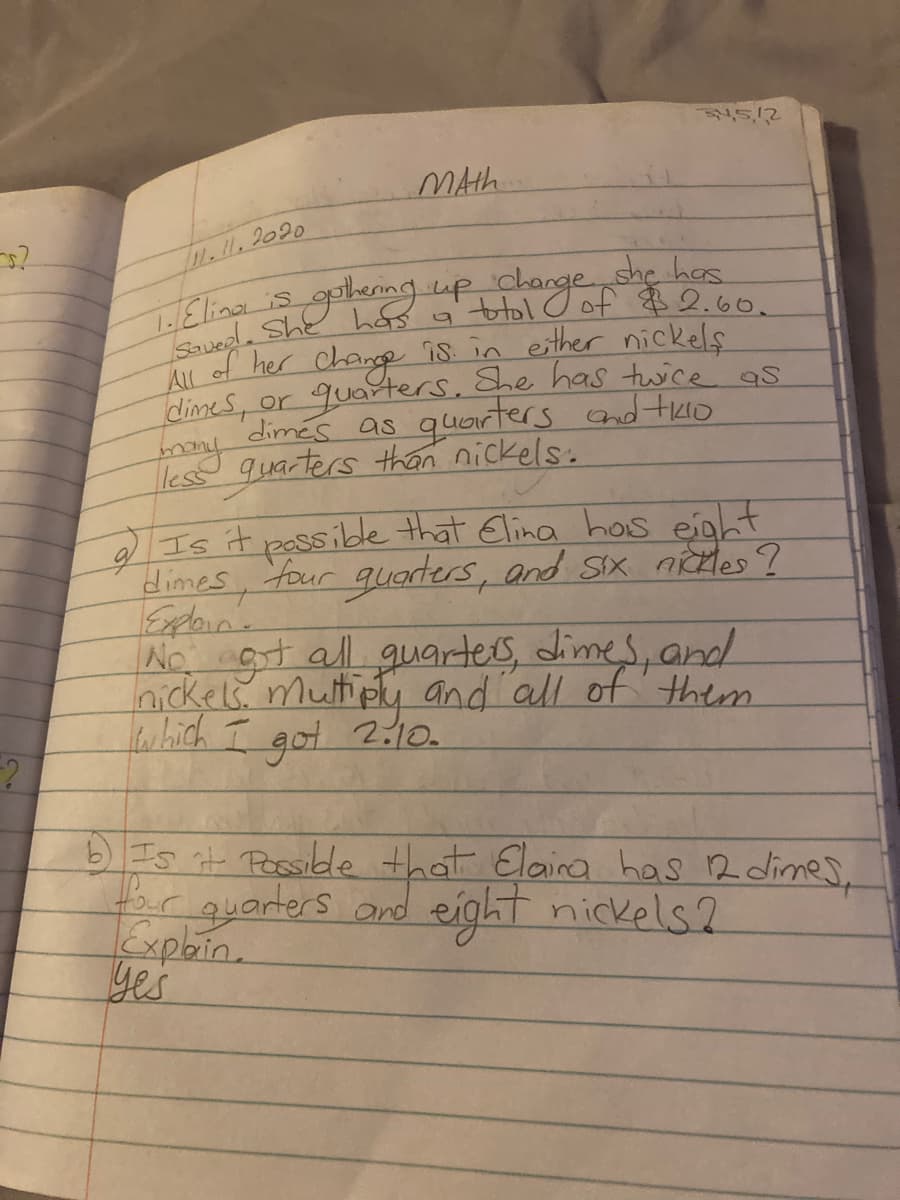 3,4,5,12
MAth
11.11.2020
1. Elina is gathering up change she has
saved. She has a total of $2.60.
All of her change is in either nickels
dimes, or quarters. She has twice as
many dimes as quarters and two
less quarters than nickels.
a) Is it possible that Elina has eight
dimes, four quarters, and six nickles?
Explain.
No got all quarters, dimes, and
nickels. Multiply and all of them
which I got 2.10.
b) Is it Possible that Elaina has 12 dimes,
four quarters and eight nickels?
Explain.
yes
s?
?